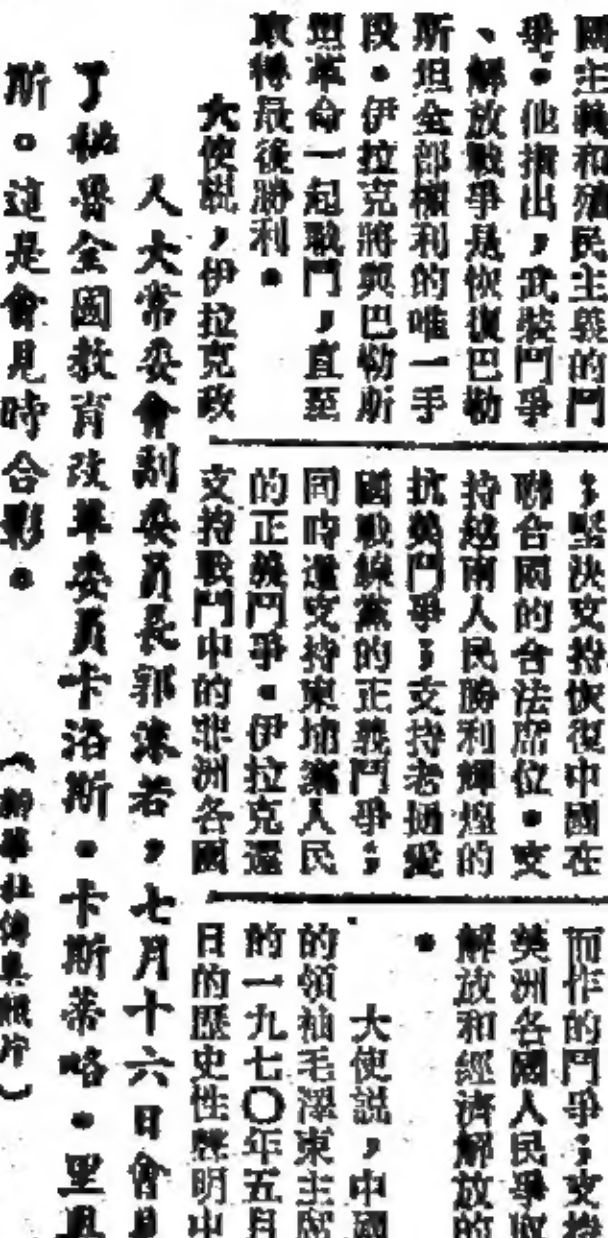 國主義和殖民主義的鬥
爭。他指出,武裝鬥爭
、解放戰爭是恢復巴勒
斯坦全部權利的唯一手
段。伊拉克將與巴勒斯
坦革命一起戰鬥,直至
取得最後勝利。
大使說,伊拉克政
;堅決支持恢復中國在
聯合國的合法席位。支
持越南人民勝利輝煌的
抗美鬥爭;支持老撾愛
國戰線黨的正義鬥爭;
同時還支持柬埔寨人民
的正義鬥爭。伊拉克還
支持戰鬥中的非洲各國
而作的鬥爭;支持
美洲各國人民爭取
解放和經濟解放的
。
大使説,中國
的領袖毛澤東主席
的一九七〇年五月
日的歷史性聲明中
人大常委會副委員長郭沫若,七月十六日會見
了秘魯全國教育改革委員卡洛斯。卡斯蒂略。里
斯。這是會見時合影。
(新華社傳真照片)